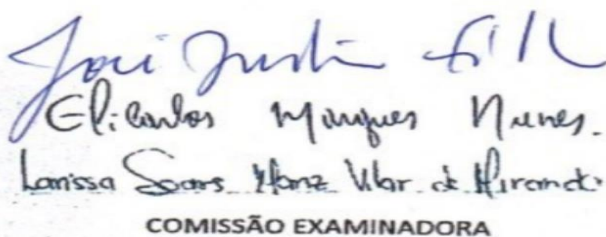 José Justino Filho
Elicarlos Marques Nunes.
Larissa Soares Mariz Vilar de Miranda
COMISSÃO EXAMINADORA